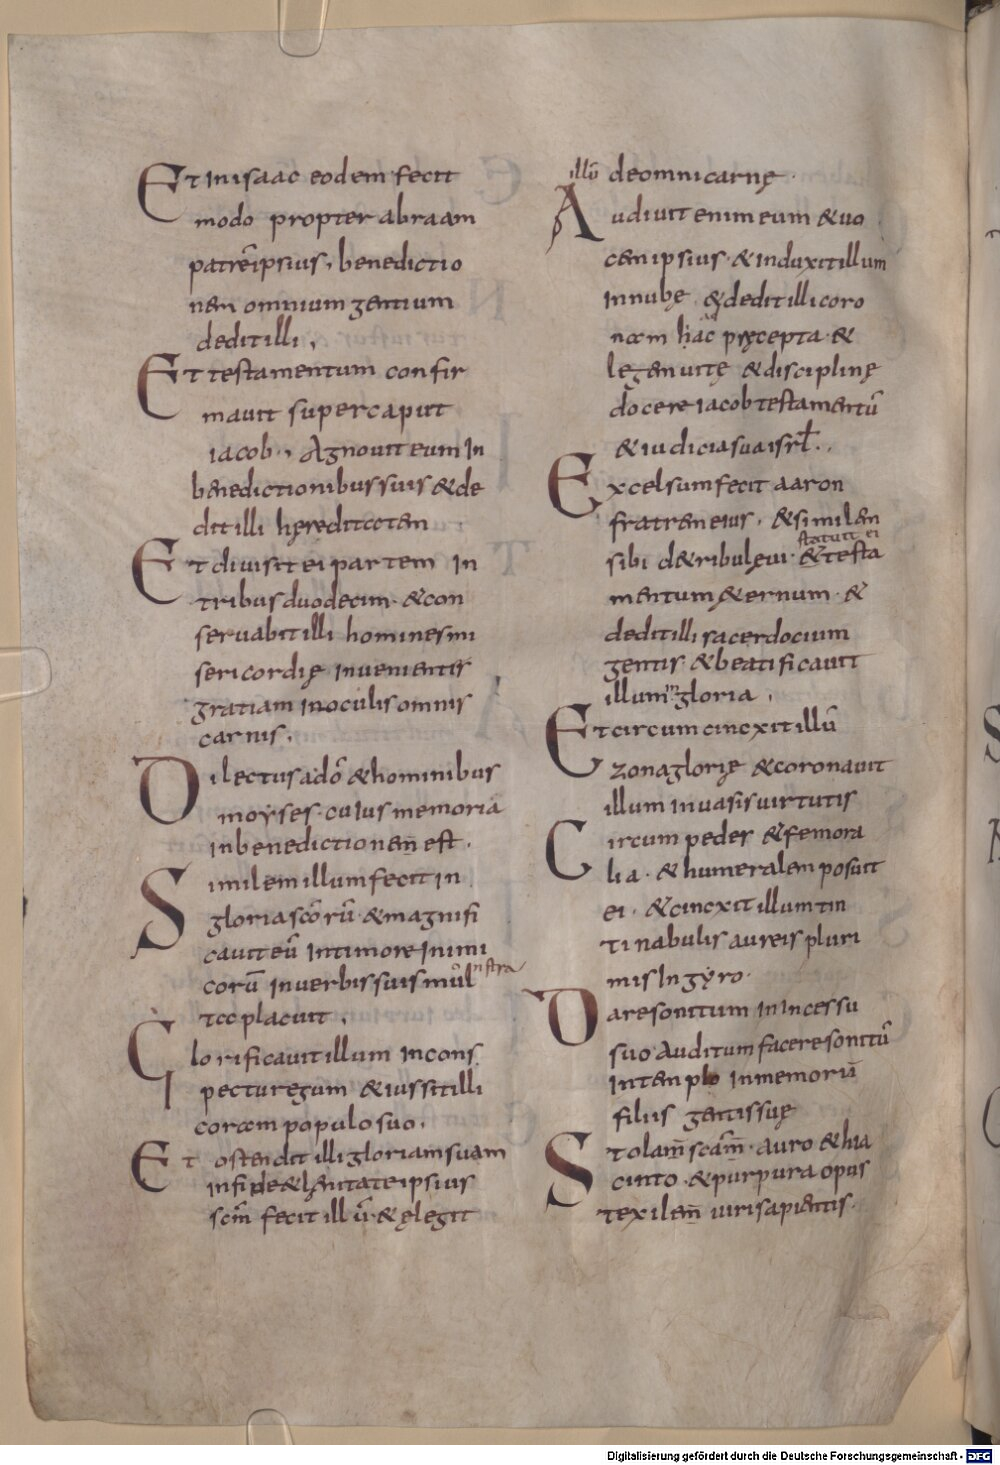 Et in isaac eodem fecit
modo propter abraam
patrē ipsius, benedictio
nem omnium gentium
dedit illi,
Et testamentum confir
mavit super caput
iacob, Agnovit eum In
benedictionibus suis & de
dit illi hęreditatem
Et divisit ei partem In
tribus duodecim & con
servabit illi homines mi
sericordię invenientis
gratiam In oculis omnis
carnis.
Dilectus a dō & hominibus
moyses cuIus memoria
in benedictionem est.
Similem illum fecit in
gloria scōrū & magnifi
cavit eū In timore Inimi
corū In verbis suis
placuit.
Glorificavit illum In cons
pectu regum & iussit illi
coram populo suo.
Et ostendit illi gloriam suam
In fide & lenitate ipsius
scm̄ fecit illū & ęlegit
illū de omni carnę
Audivit enim eum & vo
cem ipsius & Induxit illum
In nubę & dedit illi coro
nam hac pręcepta &
legem vitę & disciplinę
docere Iacob testamentū
& iudicia sua isrł.
Excelsum fecit aaron
fratrem eius, & similem
sibi de tribu lęvi statuit ei & testa
mentum & ernum &
dedit illi sacerdocium
gentis & beatificavit
illum In gloria,
Et circumcinxit illū
zona glorię & coronavit
illum In vasis virtutis
Circum pedes & femora
lia & humeralem posuit
ei & cinxit illum tin
tinabulis aureis pluri
mis In gyro
Dare sonitum In Incessu
suo auditum facere sonitū
In templo In memoriū
filiis gentis suę
Stolam scām auro & hia
cinto & purpura opus
texilem viri sapientis
Digitalisierung gefördert durch die Deutsche Forschungsgemeinschaft - DFG